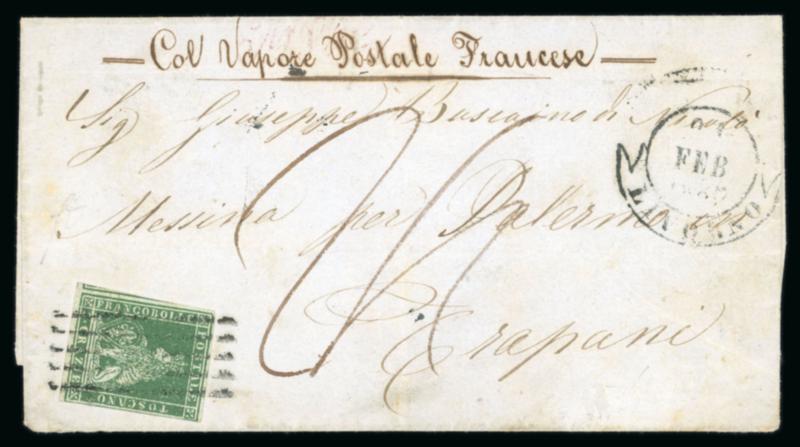 Col Vapore Postale Francese
Sig Giuseppe Buscaino di Nicolò
Messina per Palermo
Trapani
FEB
LIVORNO
FRANCOBOLLO
POSTALE
TOSCANO
4 CRAZIE